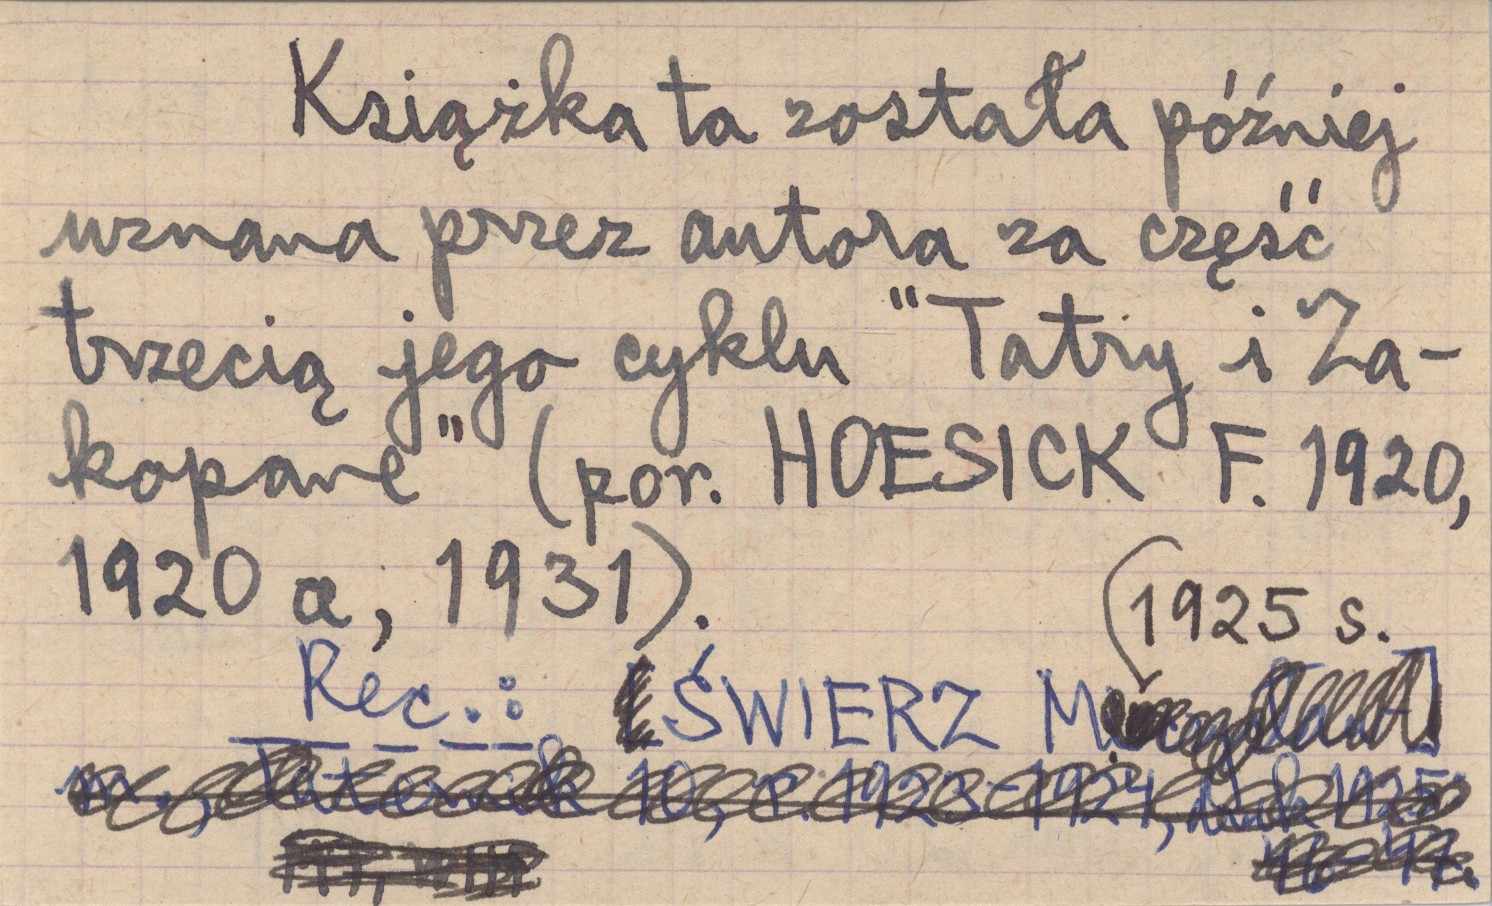 Książka ta została później
uznana przez autora za część
trzecią jego cyklu "Tatry i Za-
kopane" (por. HOESICK F. 1920,
1920 a, 1931).
(1925 s.
Rec.: ŚWIERZ M
10, r. 1923-1924, 1925